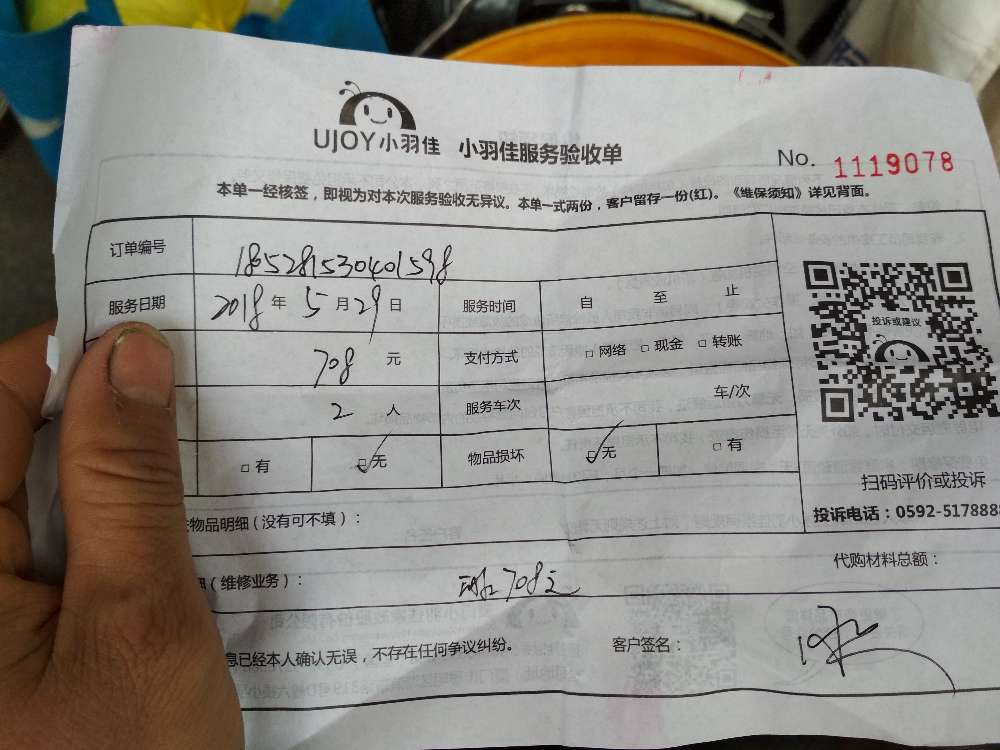 UJOY小羽佳 小羽佳服务验收单
No. 1119078
本单一经核签，即视为对本次服务验收无异议。本单一式两份，客户留存一份(红)。《维保须知》详见背面。
订单编号 1805281530401598
服务日期 2018年5月29日 服务时间 自 至 止
708 元 支付方式 □ 网络 □ 现金 □ 转账
2 人 服务车次 车/次
□ 有 ☑ 无 物品损坏 ☑ 无 □ 有
投诉或建议
扫码评价或投诉
投诉电话：0592-5178888
物品明细（没有可不填）：
（维修业务）： 708元
代购材料总额：
息已经本人确认无误，不存在任何争议纠纷。 客户签名：